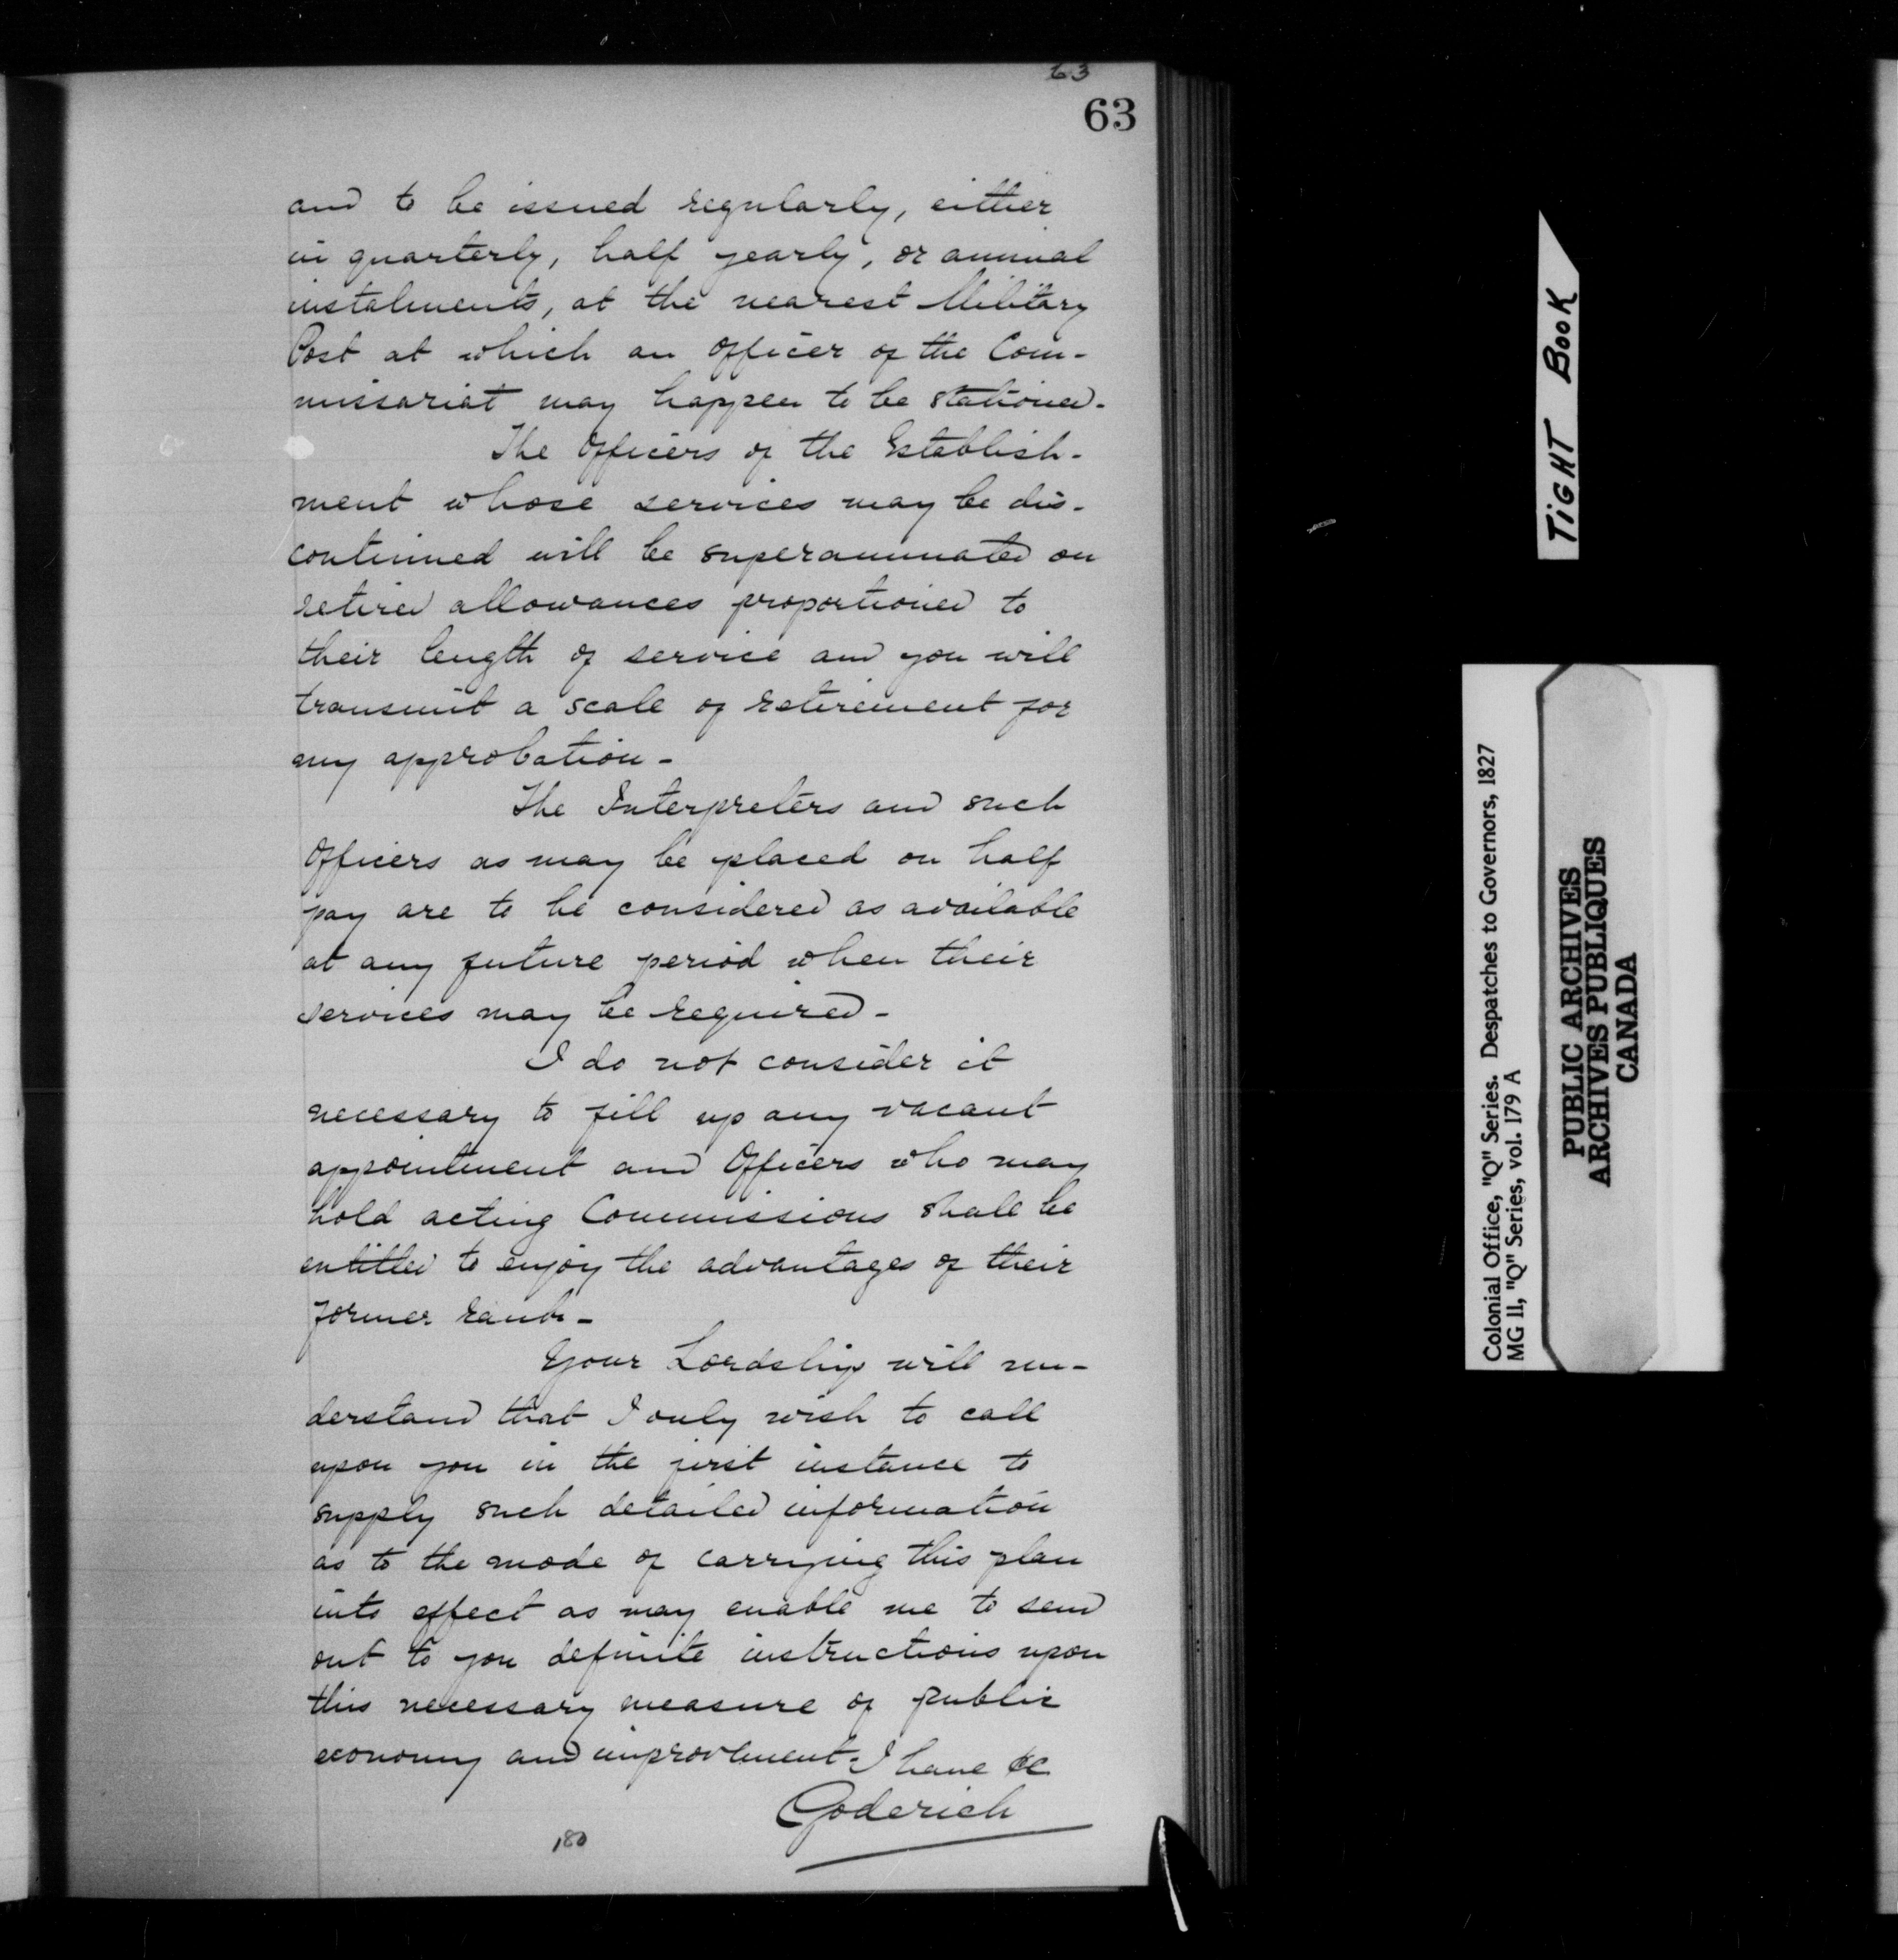 63
63
and to be issued regularly, either
in quarterly, half yearly, or annual
instalments, at the nearest Military
Post at which an Officer of the Com-
missariat may happen to be stationed.
The Officers of the Establish-
ment whose services may be dis-
continued will be superannuated on
retired allowances proportioned to
their length of service and you will
transmit a scale of retirement for
my approbation -
The Interpreters and such
Officers as may be placed on half
pay are to be considered as available
at any future period when their
services may be required -
I do not consider it
necessary to fill up any vacant
appointment and Officers who may
hold acting Commissions shall be
entitled to enjoy the advantages of their
former rank -
Your Lordship will un-
derstand that I only wish to call
upon you in the first instance to
supply such detailed information
as to the mode of carrying this plan
into effect as may enable me to send
out to you definite instructions upon
this necessary measure of public
economy and improvement. I have &c
Goderich
180
TIGHT BOOK
Colonial Office, "Q" Series. Despatches to Governors, 1827
MG 11, "Q" Series, vol. 179 A
PUBLIC ARCHIVES
ARCHIVES PUBLIQUES
CANADA